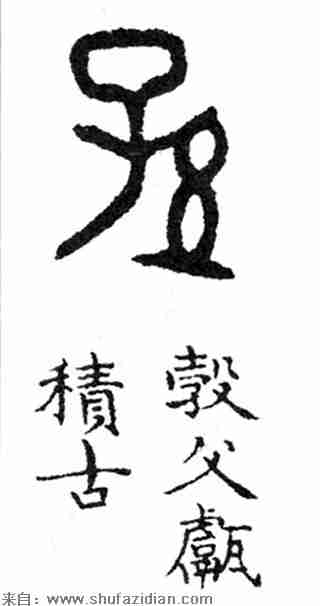 㝅父甗
積古
来自：www.shufazidian.com